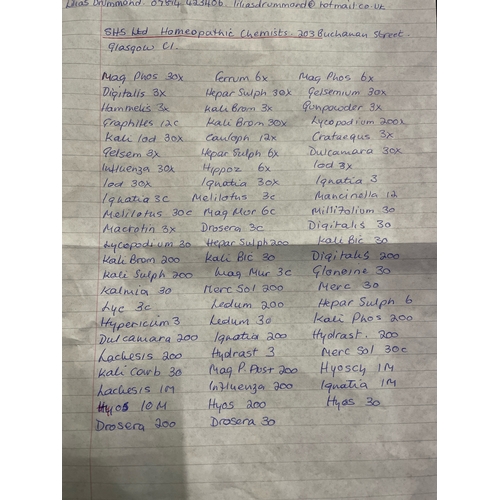 Lilias Drummond 07814 423406 liliasdrummond@hotmail.co.uk
SHS Ltd Homeopathic Chemists 203 Buchanan Street.
Glasgow C1.
Mag Phos 30x Ferrum 6x Mag Phos 6x
Digitalis 3x Hepar Sulph 30x Gelsemium 30x
Hammelis 3x Kali Brom 3x Gunpowder 3x
Graphites 12c Kali Brom 30x Lycopodium 200x
Kali Iod 30x Cauloph 12x Crataegus 3x
Gelsem 3x Hepar Sulph 6x Dulcamara 30x
Influenza 30x Hippoz 6x Iod 3x
Iod 30x Ignatia 30x Ignatia 3
Ignatia 3c Melilotus 3c Mancinella 12
Melilotus 30c Mag Mur 6c Millifolium 30
Macrotin 3x Drosera 3c Digitalis 30
Lycopodium 30 Hepar Sulph 200 Kali Bic 30
Kali Brom 200 Kali Bic 30 Digitalis 200
Kali Sulph 200 Mag Mur 3c Glonoine 30
Kalmia 30 Merc Sol 200 Merc 30
Lyc 3c Ledum 200 Hepar Sulph 6
Hypericum 3 Ledum 30 Kali Phos 200
Dulcamara 200 Ignatia 200 Hydrast. 200
Lachesis 200 Hydrast 3 Merc Sol 30c
Kali Carb 30 Mag P. Aust 200 Hyosch 1M
Lachesis 1M Influenza 200 Ignatia 1M
Hyos 10M Hyos 200 Hyos 30
Drosera 200 Drosera 30